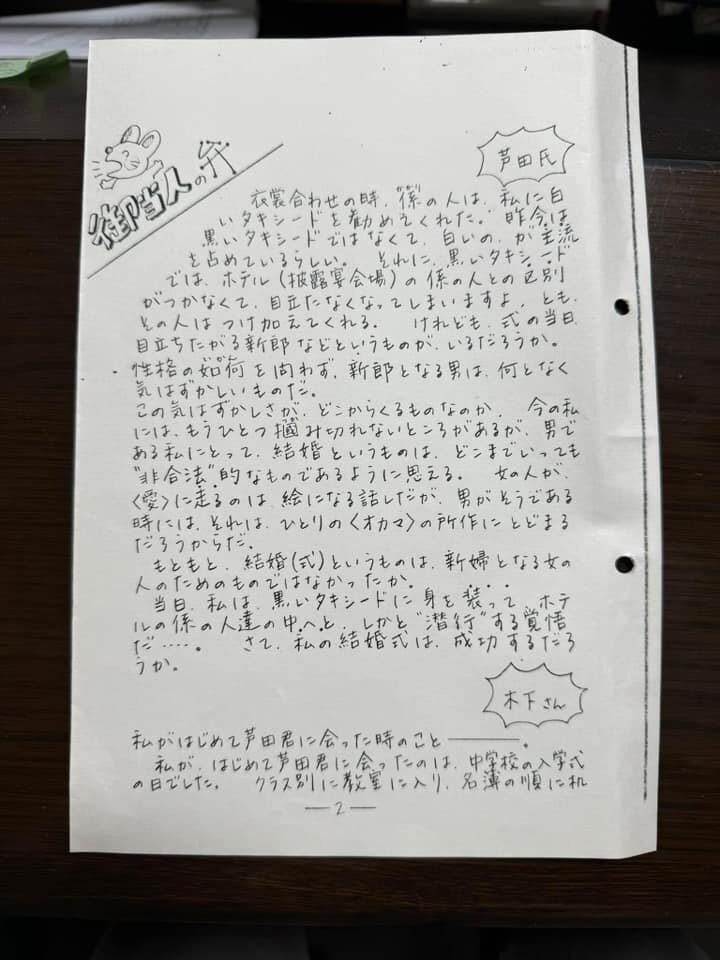 御当人の弁
芦田氏
衣裳合わせの時、"係"の人は、私に白
いタキシードを勧めてくれた。昨今は
黒いタキシードではなくて、白いの、が主流
を占めているらしい。 それに、黒いタキシード
では、ホテル(披露宴会場)の係の人との区別
がつかなくて、目立たなくなってしまいますよ、とも、
その人はつけ加えてくれる。 けれども、式の当日、
目立ちたがる新郎などというものが、いるだろうか。
性格の如何を問わず、新郎となる男は、何となく
気はずかしいものだ。
この気はずかしさが、どこからくるものなのか、 今の私
には、もうひとつ摑み切れないところがあるが、男で
ある私にとって、結婚というものは、どこまでいっても
"非合法"的なものであるように思える。 女の人が、
〈愛〉に走るのは、絵になる話しだが、男がそうである
時には、それは、ひとりの〈オカマ〉の所作にとどまる
だろうからだ。
もともと、結婚(式)というものは、新婦となる女の
人のためのものではなかったか。
当日、私は、黒いタキシードに身を装って、ホテ
ルの係の人達の中へと、しかと"潜行"する覚悟
だ……。 さて、私の結婚式は、成功するだろ
うか。
木下さん
私がはじめて芦田君に会った時のこと――――。
私が、はじめて芦田君に会ったのは、中学校の入学式
の日でした。 クラス別に教室に入り、名簿の順に机
—2—